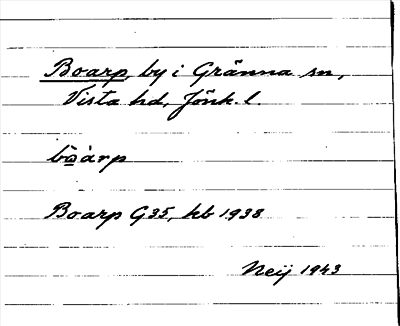 Boarp, by i Gränna sn,
Vista hd, Jönk. l.
Boarp G35, kb 1938
Neij 1943